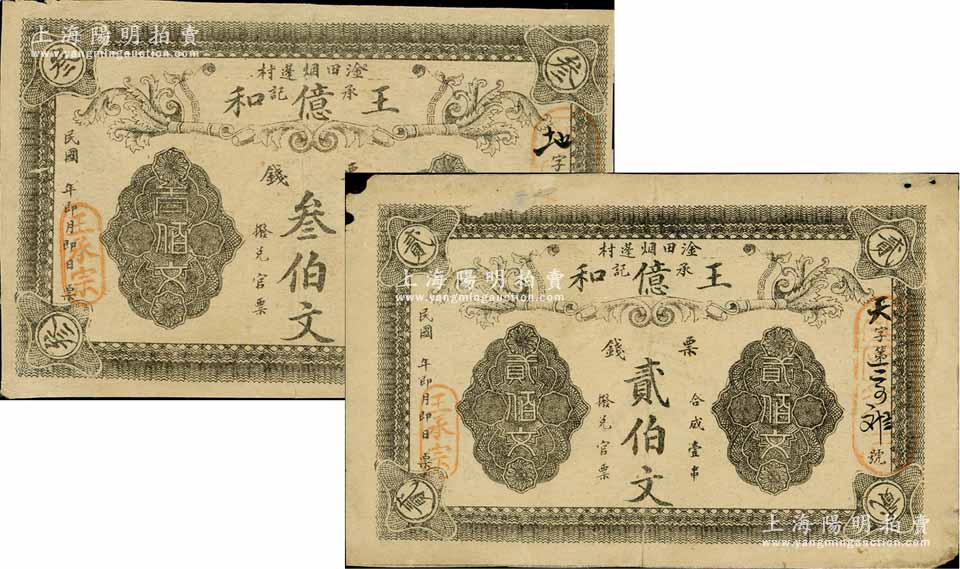 上海陽明拍賣
www.yangmingauction.com
叁
叁
村莲烟田淦
和億王
記承
地字
錢票
叁伯文
撥兑官票
叁佰文
民國 年即月即日票
王承宗
叁
貳
貳
村莲烟田淦
和億王
記承
上海陽明拍賣
www.yangmingauction.com
天字第
號
錢票
貳伯文
合成壹串
撥兑官票
貳佰文
貳佰文
民國 年即月即日票
王承宗
貳
貳
上海陽明拍賣
www.yangmingauction.com